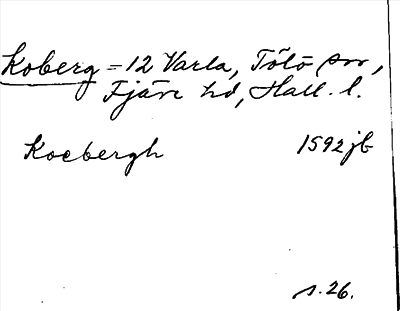 Koberg = 12 Varla, Tölö sn,
Fjäre hd, Hall. l.
Kocbergh 1592 jb
s. 26.